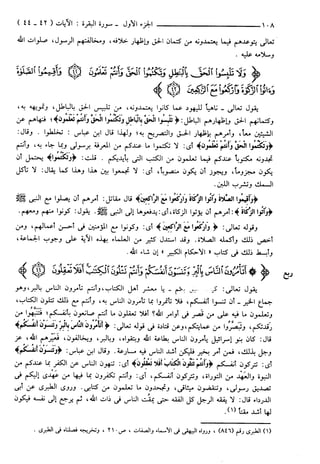 ١٠٨ الجزء الأول - سورة البقرة : الآيات (٤٢ - ٤٤)
تعالى يتوعدهم فيما يعتمدونه من كتمان الحق وإظهار خلافه، ومخالفتهم الرسول، صلوات الله
وسلامه عليه .
﴿ وَلَا تَلْبِسُوا الْحَقَّ بِالْبَاطِلِ وَتَكْتُمُوا الْحَقَّ وَأَنتُمْ تَعْلَمُونَ ۝ وَأَقِيمُوا الصَّلَاةَ
وَآتُوا الزَّكَاةَ وَارْكَعُوا مَعَ الرَّاكِعِينَ ۝ ﴾
يقول تعالى - ناهياً لليهود عما كانوا يعتمدونه، من تلبيس الحق بالباطل، وتمويهه به،
وكتمانهم الحق وإظهارهم الباطل: ﴿وَلَا تَلْبِسُوا الْحَقَّ بِالْبَاطِلِ وَتَكْتُمُوا الْحَقَّ وَأَنتُمْ تَعْلَمُونَ﴾؛ فنهاهم عن
الشيئين معاً، وأمرهم بإظهار الحق والتصريح به؛ ولهذا قال ابن عباس : تخلطوا . وقال:
﴿وَتَكْتُمُوا الْحَقَّ وَأَنتُمْ تَعْلَمُونَ﴾ أي: لا تكتموا ما عندكم من المعرفة برسولي وبما جاء به، وأنتم
تجدونه مكتوباً عندكم فيما تعلمون من الكتب التي بأيديكم . قلت: ﴿وَتَكْتُمُوا﴾ يحتمل أن
يكون مجزوماً، ويجوز أن يكون منصوباً، أي: لا تجمعوا بين هذا وهذا كما يقال: لا تأكل
السمك وتشرب اللبن.
﴿وَأَقِيمُوا الصَّلَاةَ وَآتُوا الزَّكَاةَ وَارْكَعُوا مَعَ الرَّاكِعِينَ﴾ قال مقاتل: أمرهم أن يصلوا مع النبي ﷺ
﴿وَآتُوا الزَّكَاةَ﴾: أمرهم أن يؤتوا الزكاة، أي: يدفعوها إلى النبي ﷺ. يقول: كونوا منهم ومعهم.
وقوله تعالى: ﴿وَارْكَعُوا مَعَ الرَّاكِعِينَ﴾ أي: وكونوا مع المؤمنين في أحسن أعمالهم، ومن
أخص ذلك وأكمله الصلاة. وقد استدل كثير من العلماء بهذه الآية على وجوب الجماعة،
وأبسط ذلك في كتاب « الأحكام الكبير » إن شاء الله.
﴿ أَتَأْمُرُونَ النَّاسَ بِالْبِرِّ وَتَنسَوْنَ أَنفُسَكُمْ وَأَنتُمْ تَتْلُونَ الْكِتَابَ أَفَلَا تَعْقِلُونَ ۝ ﴾
ربع
يقول تعالى: كيف يليق بكم يا معشر أهل الكتاب، وأنتم تأمرون الناس بالبر، وهو
جماع الخير - أن تنسوا أنفسكم، فلا تأتمروا بما تأمرون الناس به، وأنتم مع ذلك تتلون الكتاب،
وتعلمون ما فيه على من قصر في أوامر الله؟ أفلا تعقلون ما أنتم صانعون بأنفسكم؛ فتنتبهوا من
رقدتكم، وتتبصروا من عمايتكم. وعن قتادة في قوله تعالى: ﴿أَتَأْمُرُونَ النَّاسَ بِالْبِرِّ وَتَنسَوْنَ أَنفُسَكُمْ﴾
قال: كان بنو إسرائيل يأمرون الناس بطاعة الله وبتقواه، وبالبر، ويخالفون، فعيرهم الله، عز
وجل بذلك، فمن أمر بخير فليكن أشد الناس فيه مسارعة. وقال ابن عباس: ﴿وَتَنسَوْنَ أَنفُسَكُمْ﴾
أي: تتركون أنفسكم ﴿وَأَنتُمْ تَتْلُونَ الْكِتَابَ أَفَلَا تَعْقِلُونَ﴾ أي: تنهون الناس عن الكفر بما عندكم من
النبوة والعهد من التوراة، وتتركون أنفسكم، أي: وأنتم تكفرون بما فيها من عهدي إليكم في
تصديق رسولي، وتنقضون ميثاقي، وتجحدون ما تعلمون من كتابي. وروى الطبري عن أبي
الدرداء قال: لا يفقه الرجل كل الفقه حتى يمقت الناس في ذات الله، ثم يرجع إلى نفسه فيكون
لها أشد مقتاً (١).
(١) الطبري رقم (٨٤٦) ، ورواه البيهقي في الأسماء والصفات ، ص٢١٠ ،